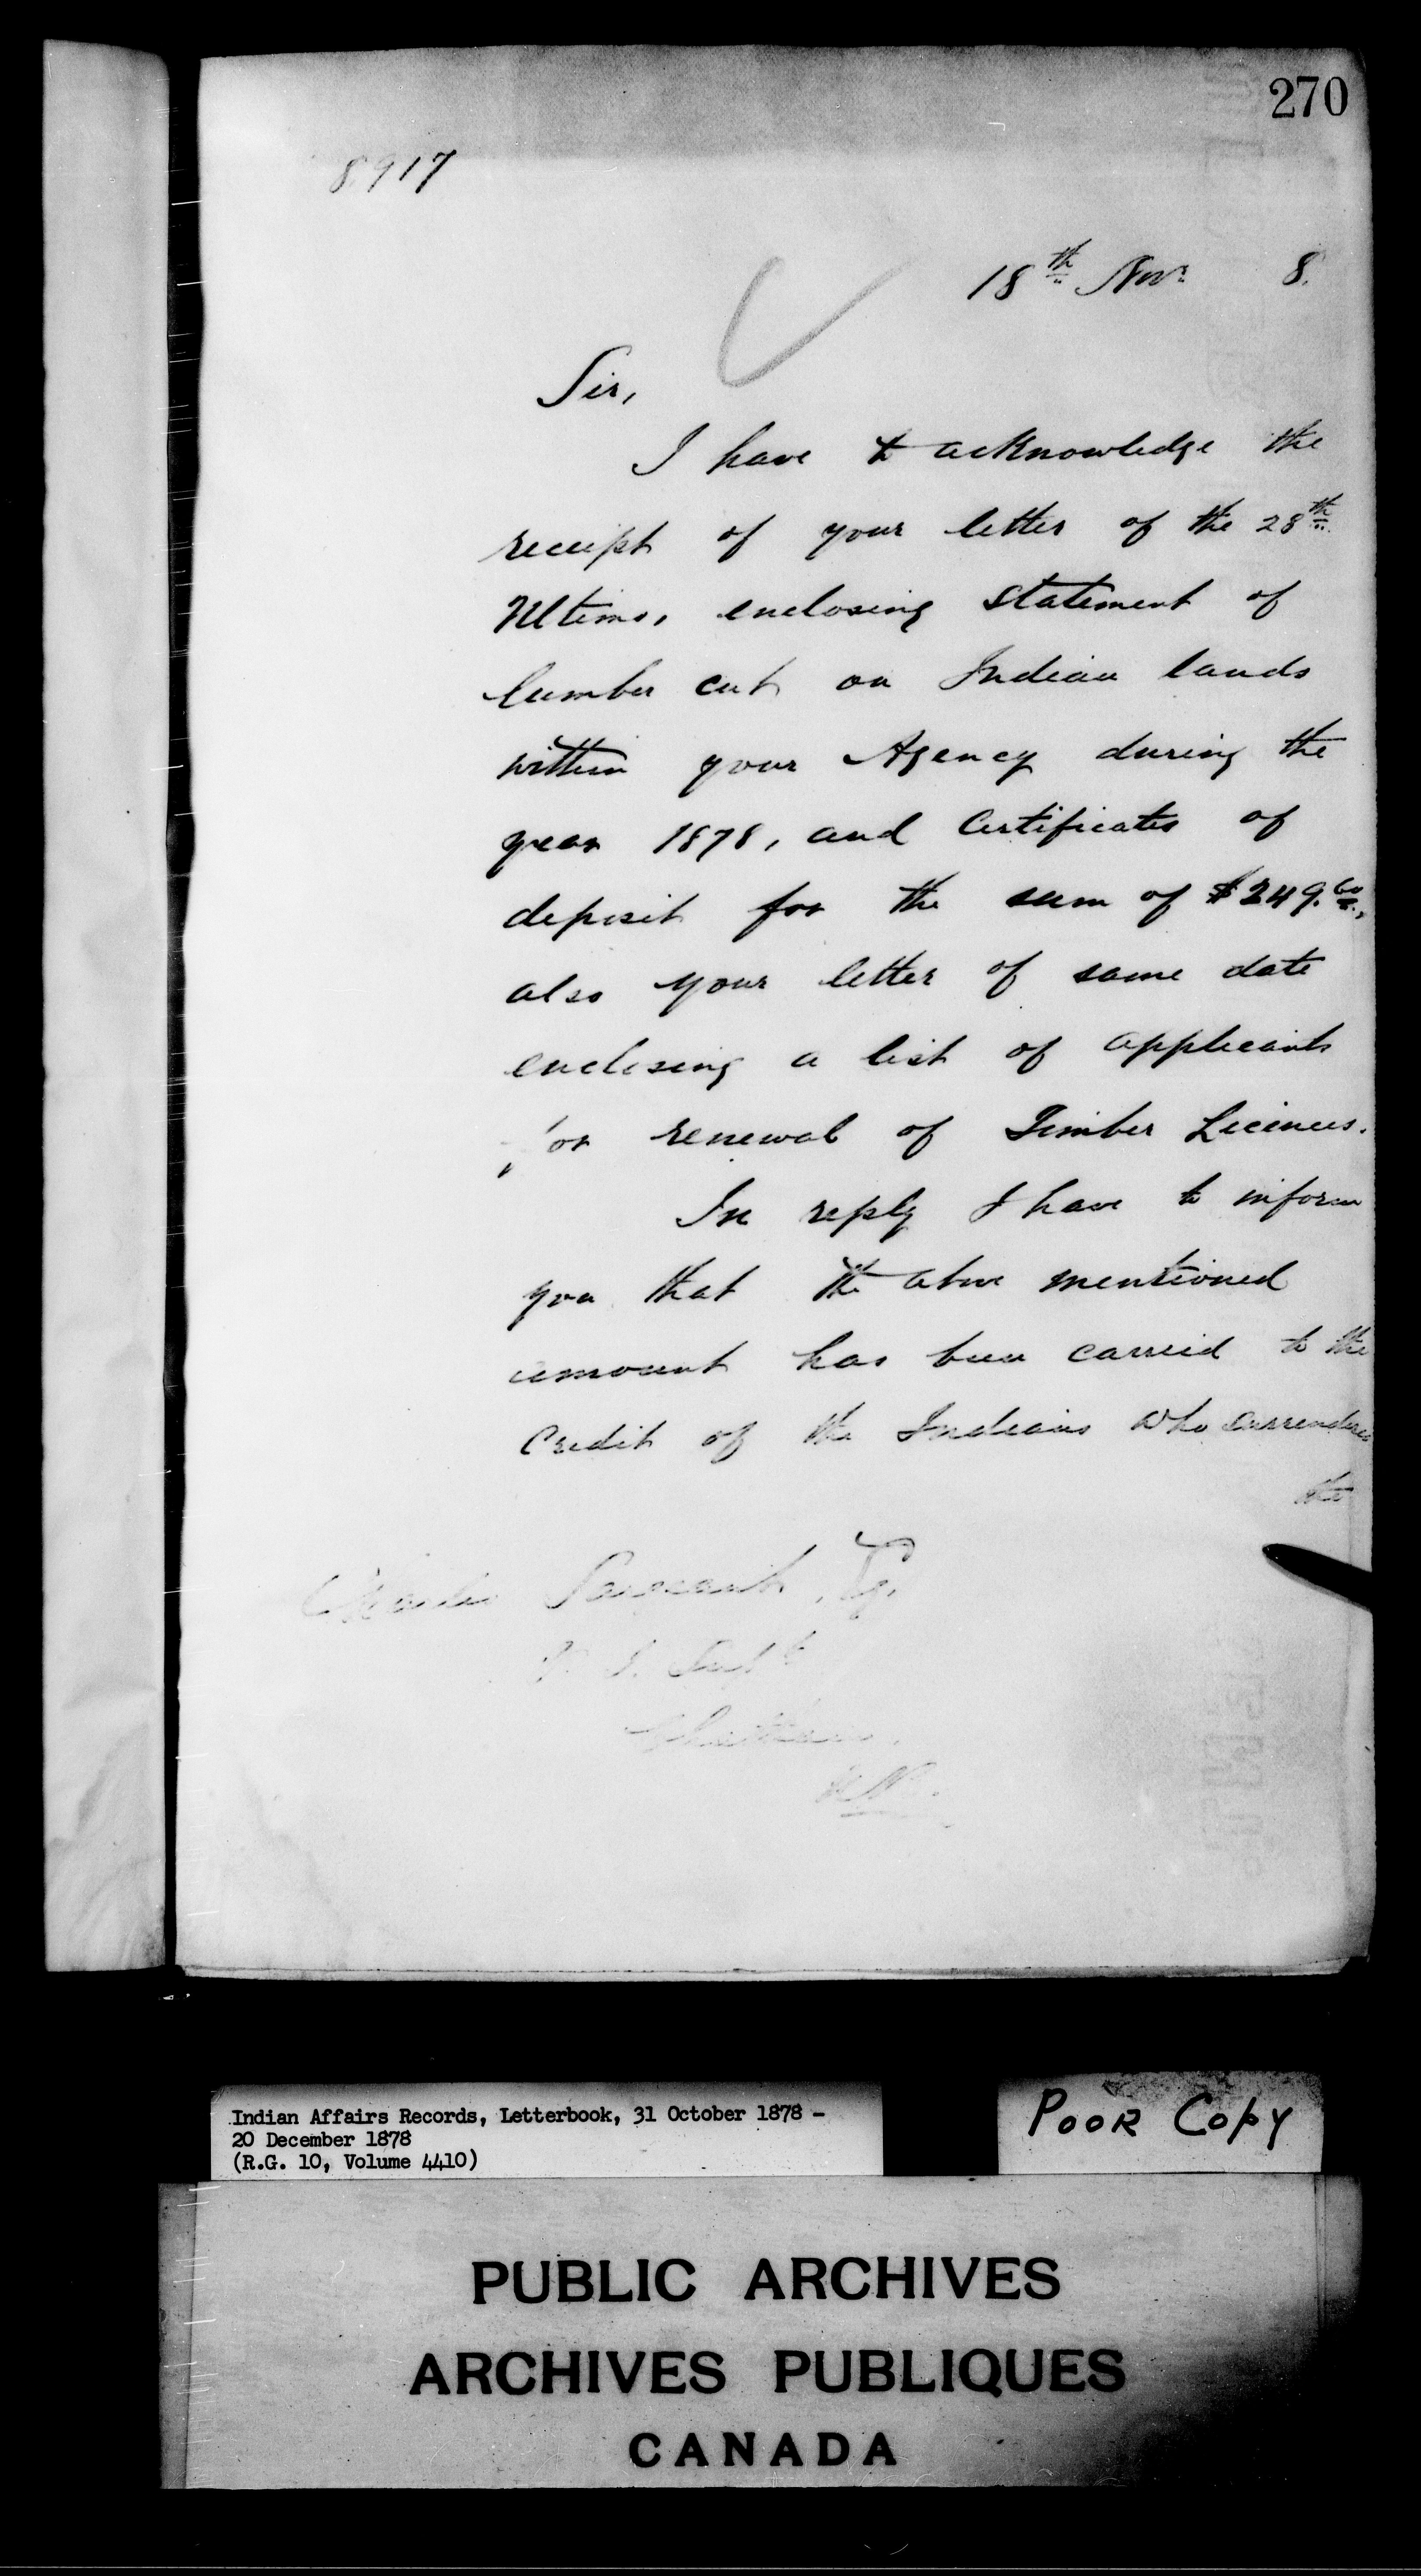 270
8917
18th Novr 8.
Sir,
I have to acknowledge the
receipt of your letter of the 28th
Ultimo, enclosing statement of
lumber cut on Indian lands
within your Agency during the
year 1878, and Certificates of
deposit for the sum of $249.60,
also your letter of same date
enclosing a list of applicants
for renewal of Timber Licences.
In reply I have to inform
you that the above mentioned
amount has been carried to the
Credit of the Indians who surrendered
the
Charles Sargeant, Esq.
Supt
Chatham,
N.B.
Indian Affairs Records, Letterbook, 31 October 1878 -
20 December 1878
(R.G. 10, Volume 4410)
Poor Copy
PUBLIC ARCHIVES
ARCHIVES PUBLIQUES
CANADA